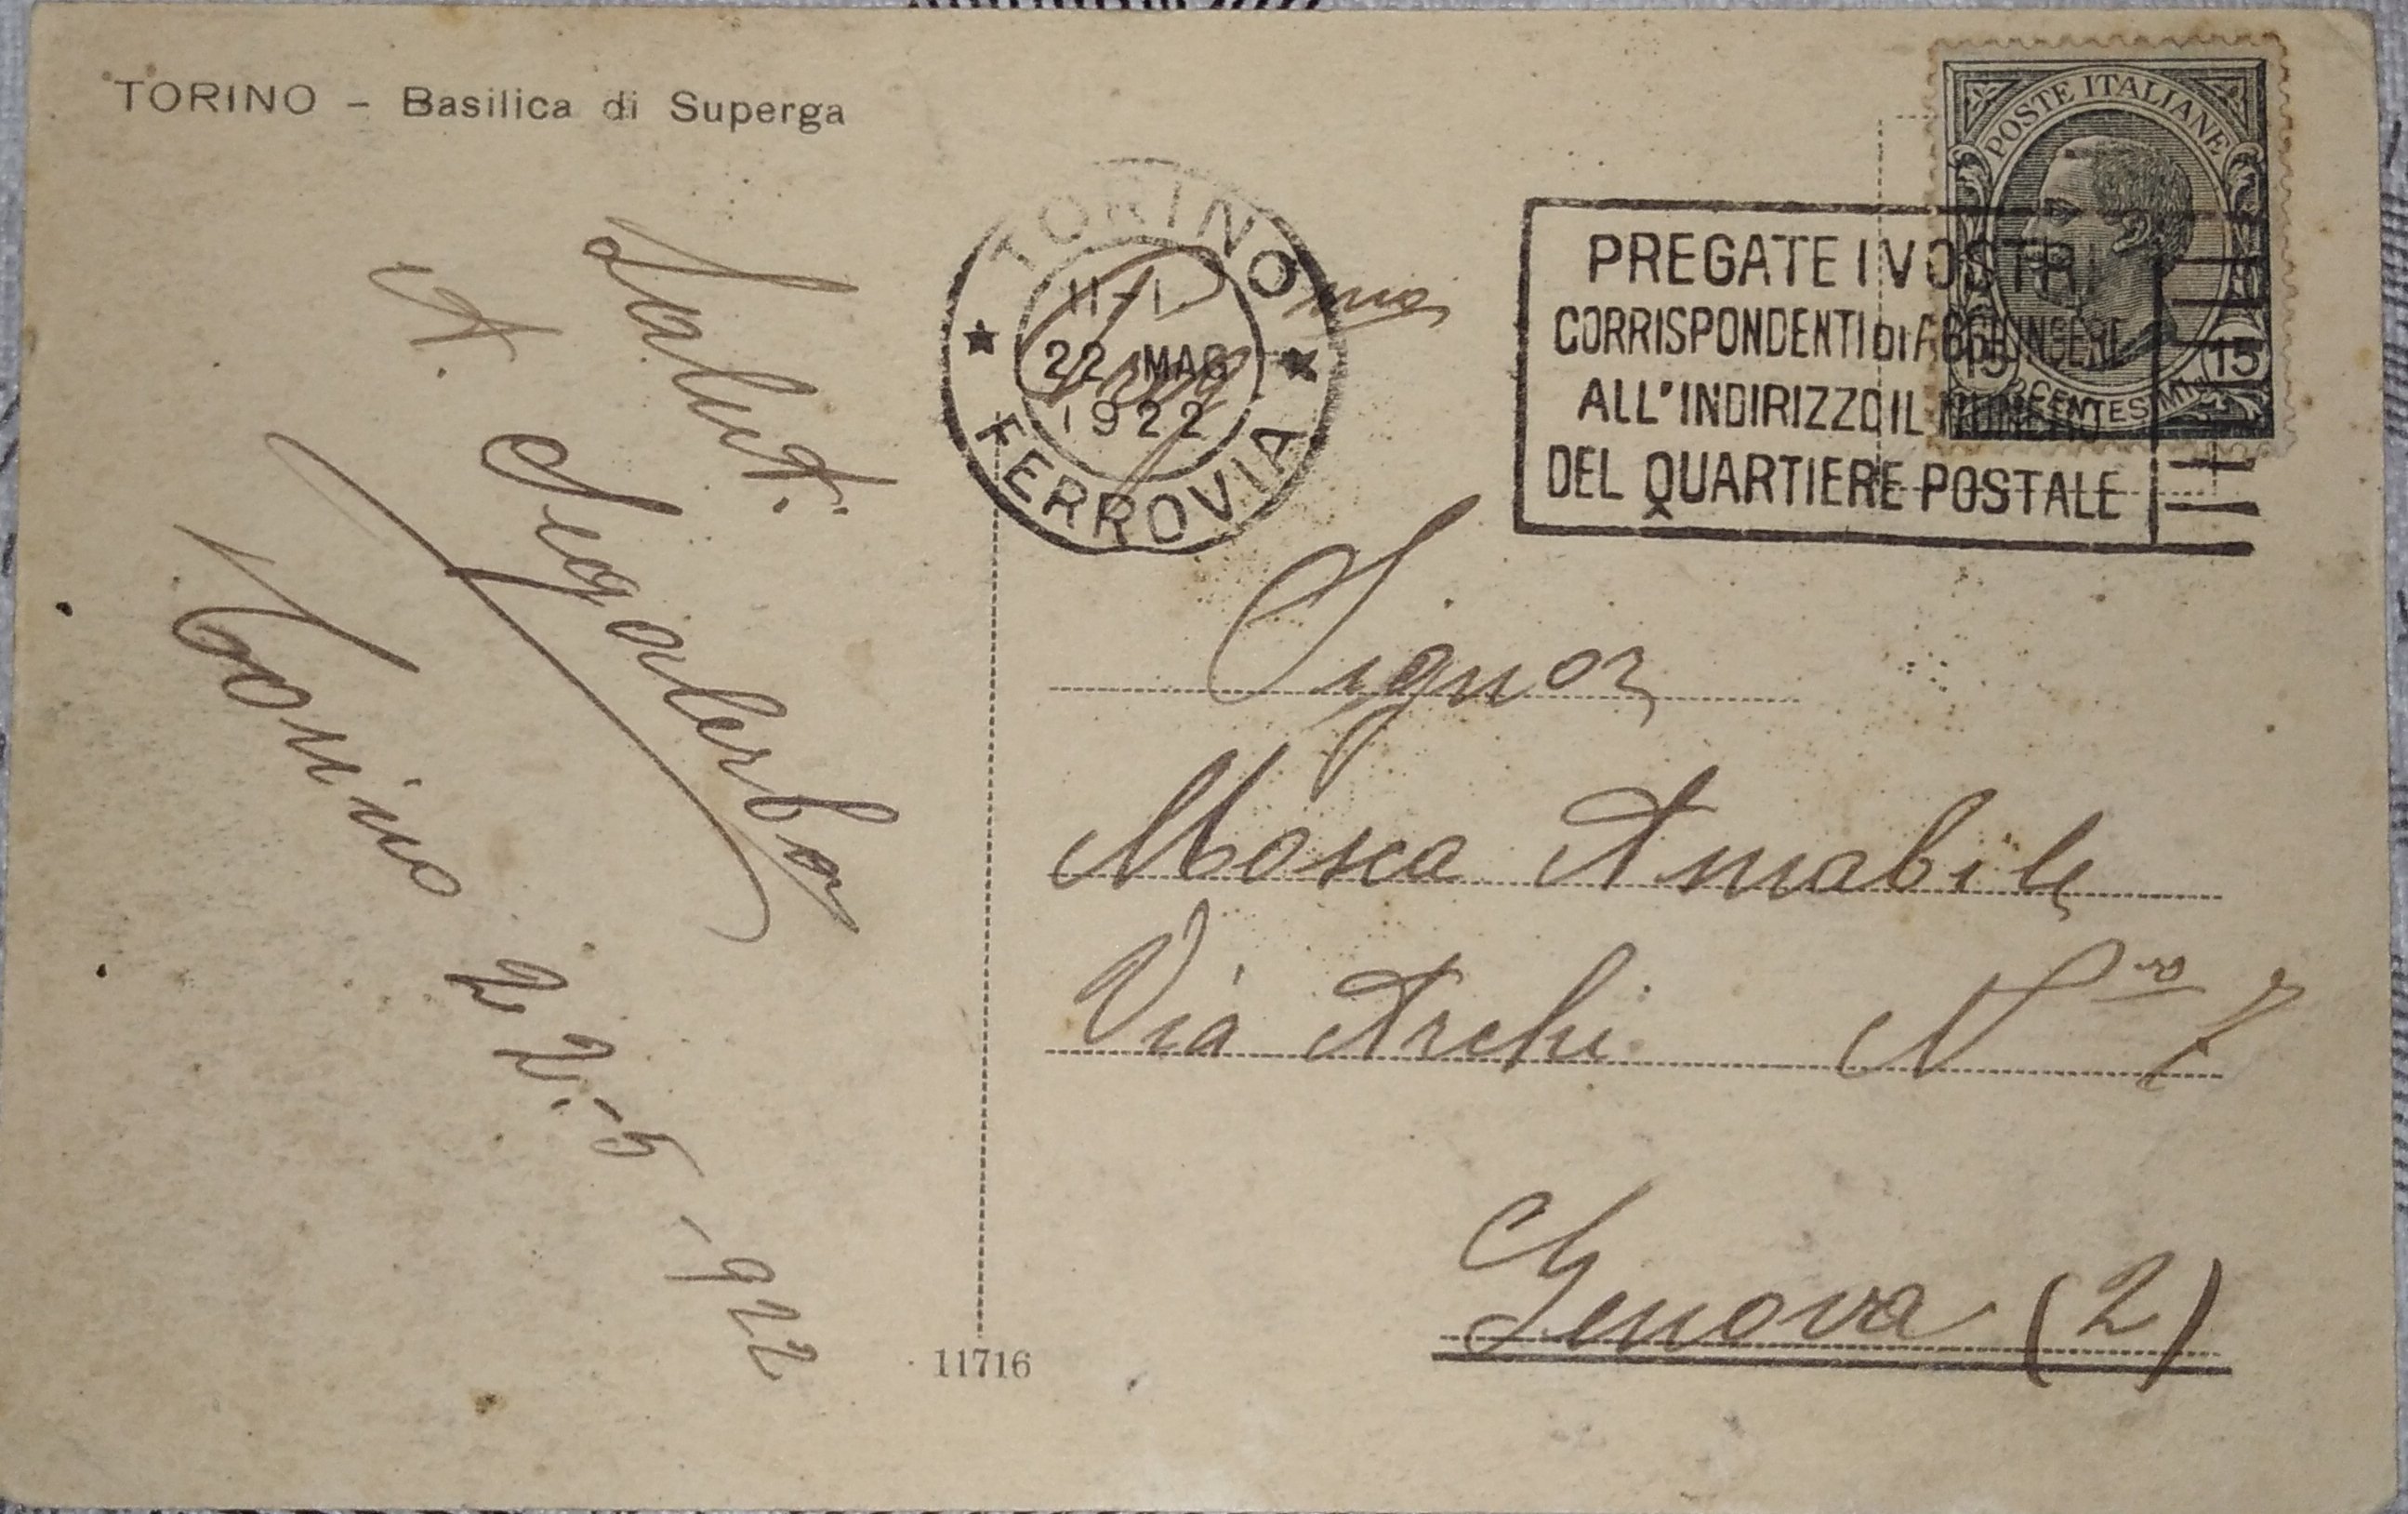 TORINO - Basilica di Superga
Saluti
A. Segalerba
Torino 22-5-922
TORINO
22 MAG
1922
FERROVIA
POSTE ITALIANE
15 15
CENTESIMI
PREGATE I VOSTRI
CORRISPONDENTI DI AGGIUNGERE
ALL'INDIRIZZO IL NUMERO
DEL QUARTIERE POSTALE
Signor
Mosca Amabile
Via Archi N 7
Genova (2)
11716